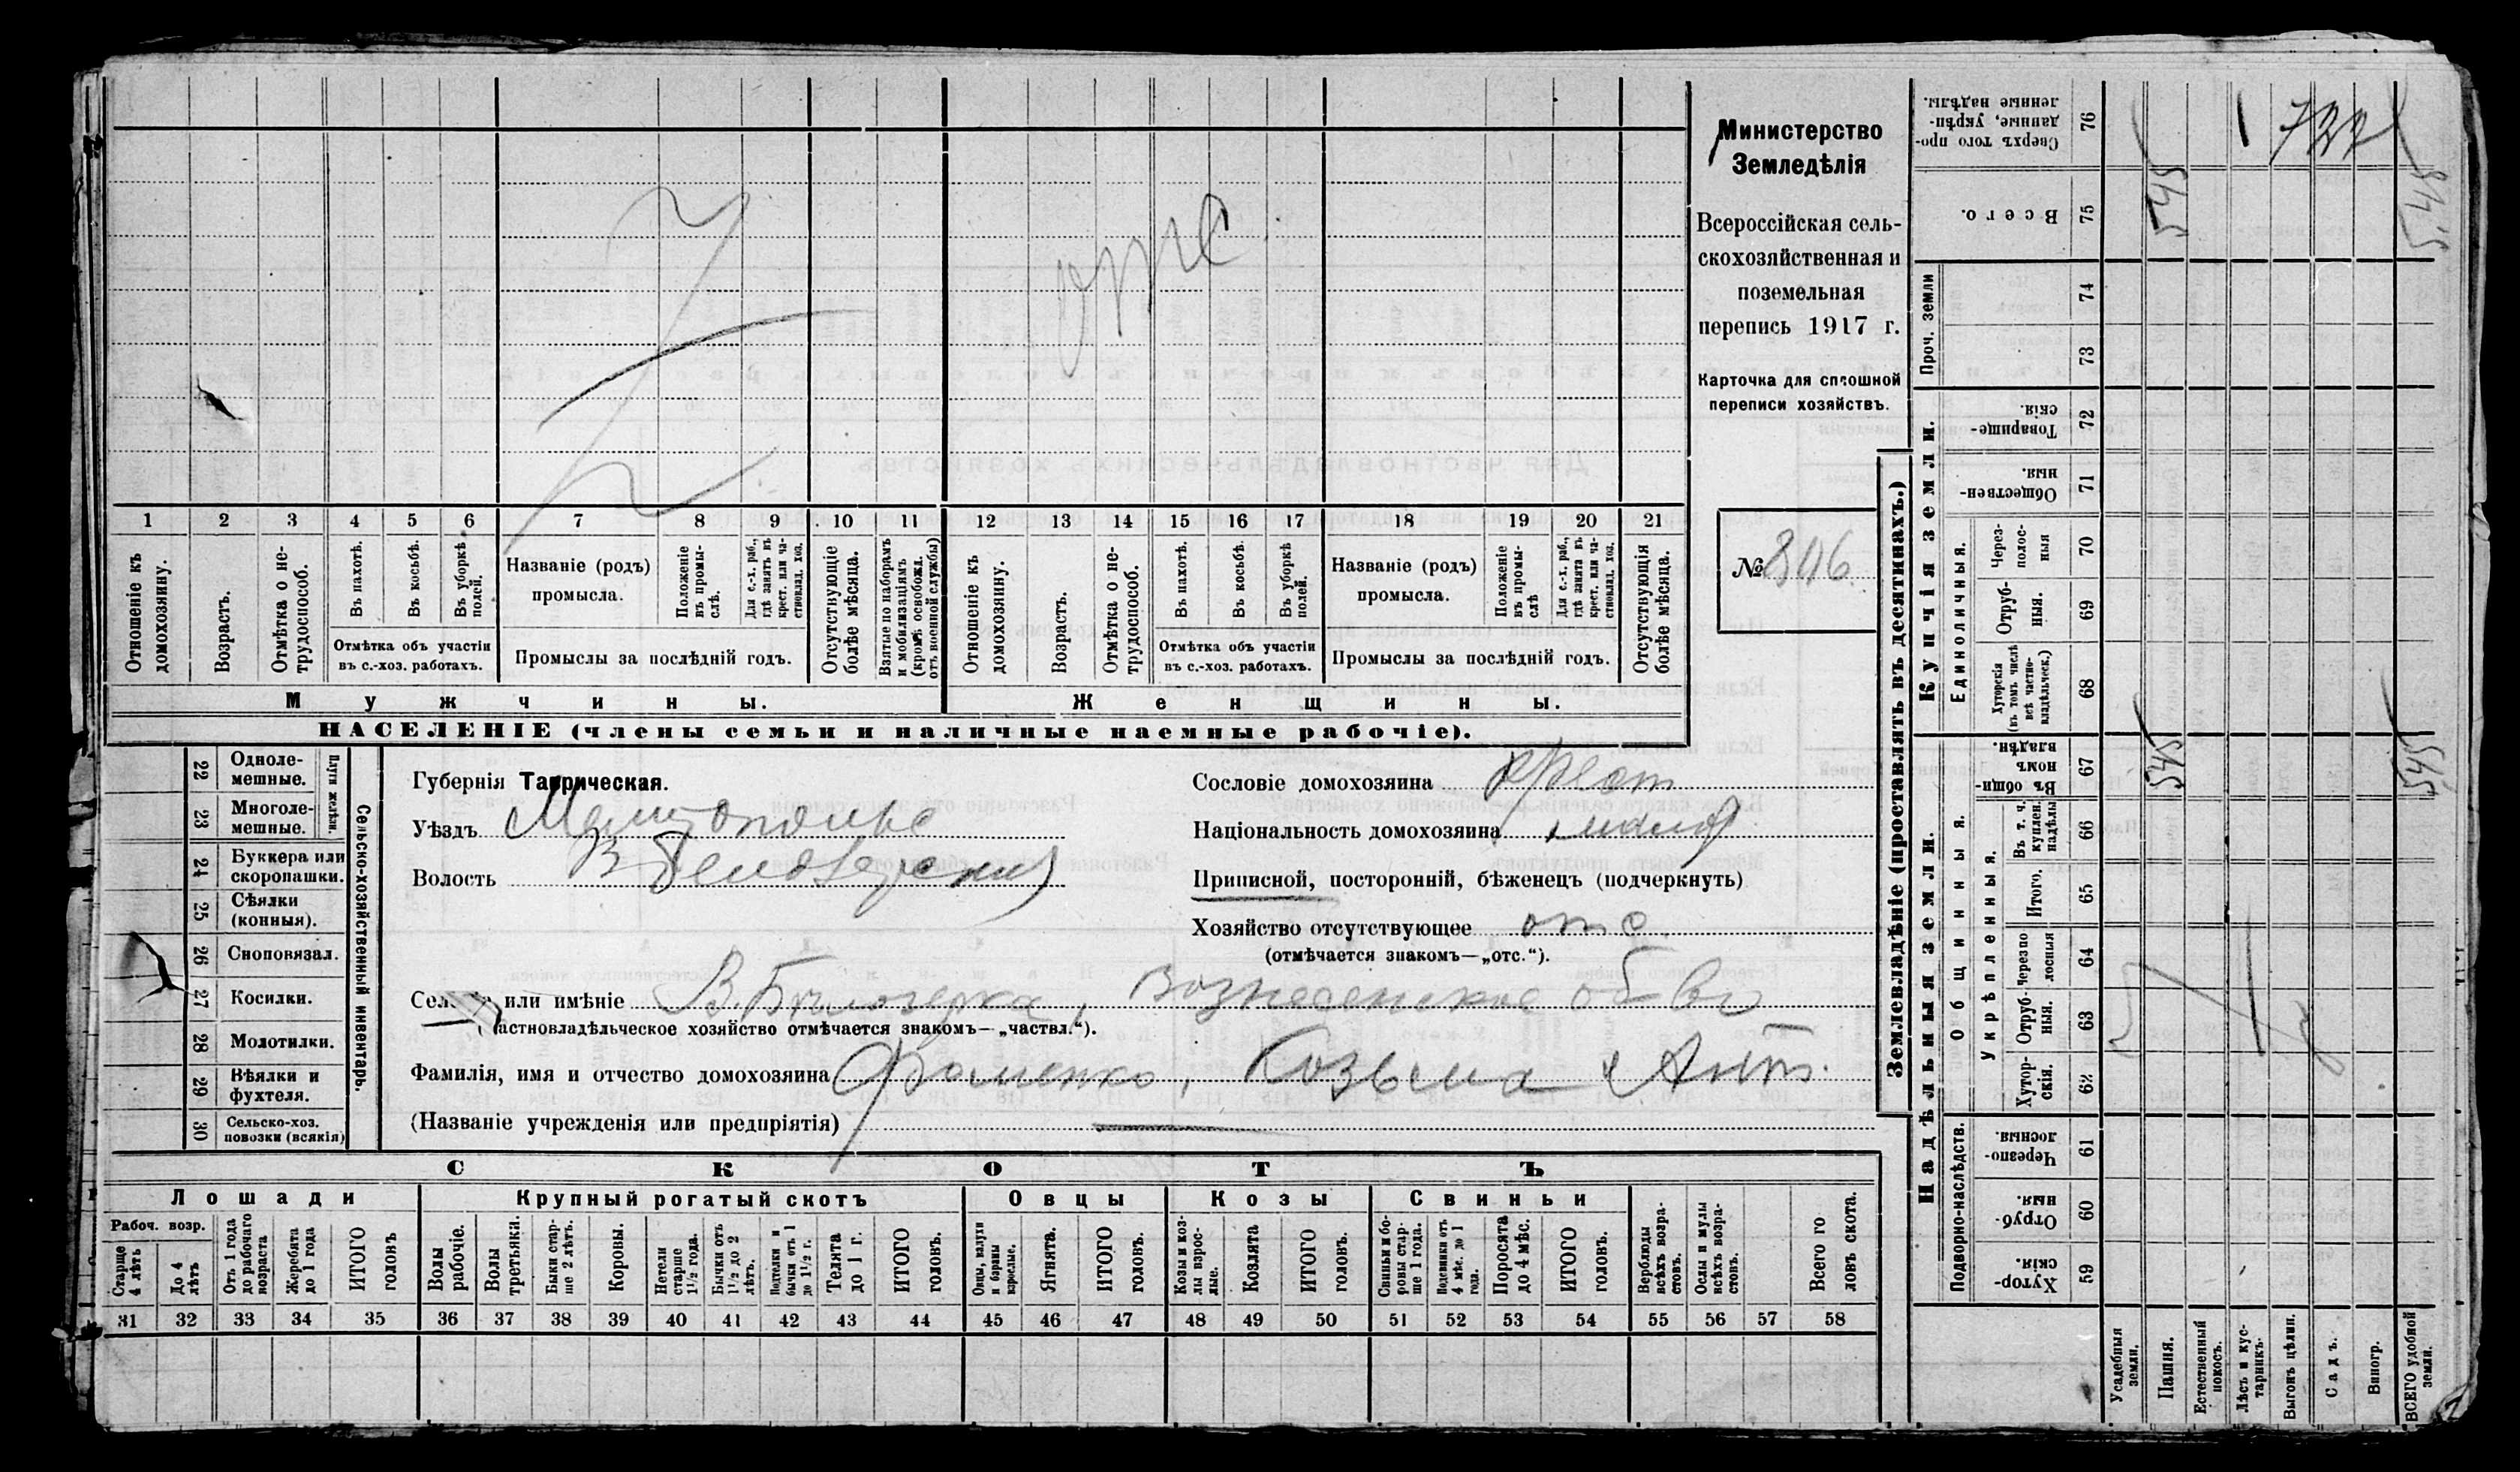 Министерство
Земледѣлія
Всероссійская сель-
скохозяйственная и
поземельная
перепись 1917 г.
Карточка для сплошной
переписи хозяйствъ.
№ 806.
отс
1 2 3 4 5 6 7 8 9 10 11 12 13 14 15 16 17 18 19 20 21
Отношеніе къ домохозяину.
Возрастъ.
Отмѣтка о не-трудоспособ.
Въ пахотѣ.
Въ косьбѣ.
Въ уборкѣ полей.
Отмѣтка объ участіи
въ с.-хоз. работахъ.
Названіе (родъ)
промысла.
Положеніе въ промы-слѣ.
Для с.-х. раб., гдѣ занятъ въ крест. или ча-стновлад. хоз.
Промыслы за послѣдній годъ.
Отсутствующіе болѣе мѣсяца.
Взятые по наборамъ и мобилизаціямъ (кромѣ освобожд. отъ военной службы)
Отношеніе къ домохозяину.
Возрастъ.
Отмѣтка о не-трудоспособ.
Въ пахотѣ.
Въ косьбѣ.
Въ уборкѣ полей.
Отмѣтка объ участіи
въ с.-хоз. работахъ.
Названіе (родъ)
промысла.
Положеніе въ промы-слѣ
Для с.-х. раб., гдѣ занята въ крест. или ча-стновлад. хоз.
Промыслы за послѣдній годъ.
Отсутствующія болѣе мѣсяца.
Мужчины.
Женщины.
НАСЕЛЕНІЕ (члены семьи и наличные наемные рабочіе).
22 Одноле-мешные.
23 Многоле-мешные.
Плуги желѣзн.
24 Буккера или скоропашки.
25 Сѣялки (конныя).
26 Сноповязал.
27 Косилки.
28 Молотилки.
29 Вѣялки и фухтеля.
30 Сельско-хоз. повозки (всякія)
Сельско-хозяйственный инвентарь.
Губернія Таврическая.
Уѣздъ Мелитопольс
Волость В Белозерская
Сословіе домохозяина крест
Національность домохозяина малор
Приписной, посторонній, бѣженецъ (подчеркнуть)
Хозяйство отсутствующее отс.
(отмѣчается знакомъ—„отс.“).
или имѣніе В. Бѣлозерка, Вознесенское об-во
(частновладѣльческое хозяйство отмѣчается знакомъ—„частвл.“).
Фамилія, имя и отчество домохозяина Фоменко, Козьма Ант.
(Названіе учрежденія или предпріятія)
СКОТЪ
Лошади
Рабоч. возр.
Старше 4 лѣтъ
До 4 лѣтъ
Отъ 1 года до рабочаго возраста
Жеребята до 1 года
ИТОГО головъ
Крупный рогатый скотъ
Волы рабочіе.
Волы третьяки.
Быки стар-ше 2 лѣтъ.
Коровы.
Нетели старше 1½ года.
Бычки отъ 1½ до 2 лѣтъ.
Подтелки и бычки отъ 1 до 1½ г.
Телята до 1 г.
ИТОГО головъ.
Овцы
Овцы, валухи и бараны взрослые.
Ягнята.
ИТОГО головъ.
Козы
Козы и коз-лы взрос-лые.
Козлята
ИТОГО головъ.
Свиньи
Свиньи и бо-ровы стар-ше 1 года.
Подсвинки отъ 4 мѣс. до 1 года.
Поросята до 4 мѣс.
ИТОГО головъ.
Верблюды всѣхъ возра-стовъ.
Ослы и мулы всѣхъ возра-стовъ.
Всего го ловъ скота.
31 32 33 34 35 36 37 38 39 40 41 42 43 44 45 46 47 48 49 50 51 52 53 54 55 56 57 58
Землевладѣніе (проставлять въ десятинахъ.)
Купчія земли.
Надѣльныя земли.
Сверхъ того про-данные, укрѣп-ленные надѣлы. 76
Всего. 75 545 545
Проч. земли 74 73
Товарище-скія. 72
Обществен-ныя. 71
Единоличныя.
Через-полос-ныя 70
Отруб-ныя. 69
Хуторскія (въ томъ числѣ всѣ частно-владѣльческ.) 68
Общинныя.
Въ общин-номъ владѣн. 67 545 545
Укрѣпленныя.
Въ т. ч. куплен. надѣлы 66
Итого. 65
Черезпо лосныя 64
Отруб-ныя. 63
Хутор-скія. 62
Подворно-наслѣдств.
Черезпо-лосныя. 61
Отруб-ныя. 60
Хутор-скія. 59
Усадебныя земли.
Пашня.
Естественный покосъ.
Лѣсъ и кус-тарникъ.
Выгонъ цѣлин.
Садъ.
Виногр.
ВСЕГО удобной земли.